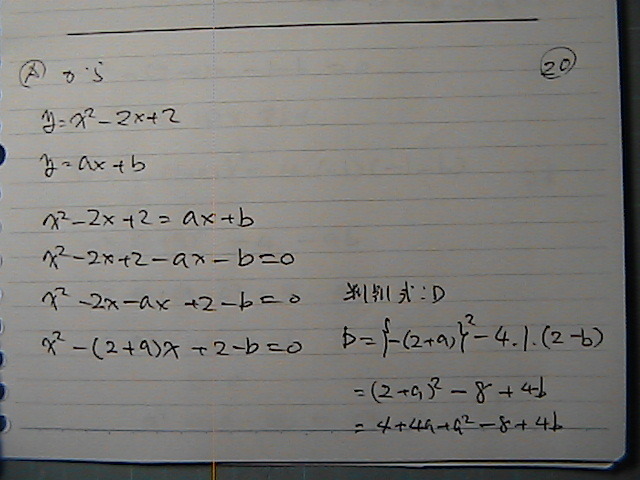 Ⓐ 0.5 ⑳
y=x²-2x+2
y=ax+b
x²-2x+2=ax+b
x²-2x+2-ax-b=0
x²-2x-ax+2-b=0 判別式:D
x²-(2+a)x+2-b=0 D={-(2+a)}²-4.1.(2-b)
=(2+a)²-8+4b
=4+4a+a²-8+4b